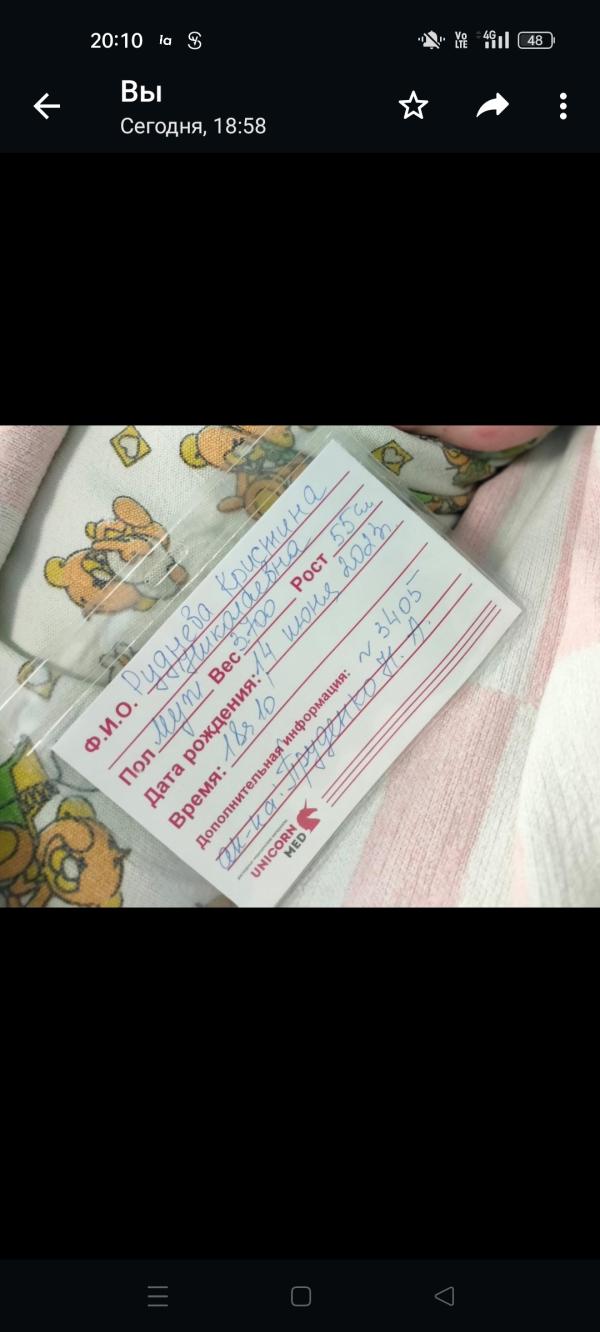 20:10
Vo LTE 4G 48
Вы
Сегодня, 18:58
Ф.И.О. Руднева Кристина
Николаевна
Пол муж Вес 3700 Рост 55см
Дата рождения: 14 июня 2023г
Время: 18ч 10
Дополнительная информация: ~ 3405
ак-ка: Пруденко Н. А.
UNICORN
MED